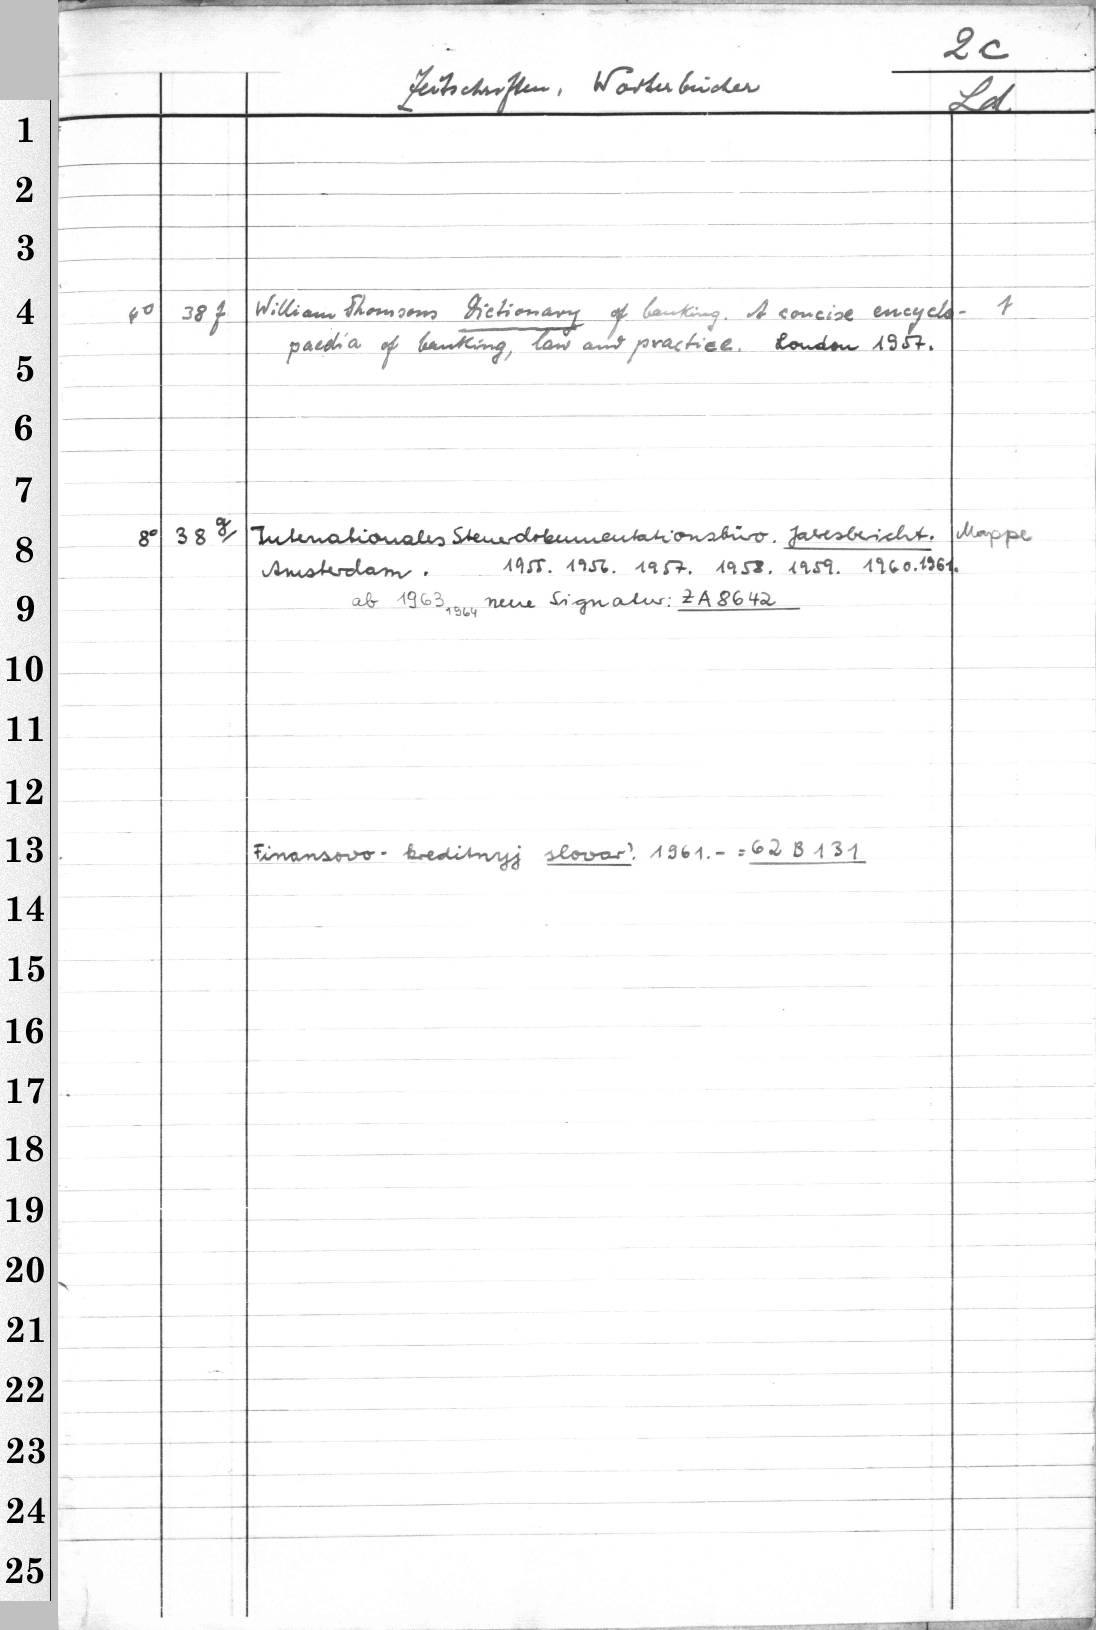 2c
Zeitschriften, Wörterbücher
Ld
1
2
3
4 4° 38 f William Thomsons Dictionary of banking. A concise encyclo- 1
paedia of banking, law and practice. London 1957.
5
6
7
8 8° 38 g Internationales Steuerdokumentationsbüro. Jaresbericht. Mappe
Amsterdam. 1955. 1956. 1957. 1958. 1959. 1960. 1961.
9 ab 1963, 1964 neue Signatur: ZA 8642
10
11
12
13 Finansovo-kreditnyj slovar'. 1961.- = 62 B 131
14
15
16
17
18
19
20
21
22
23
24
25